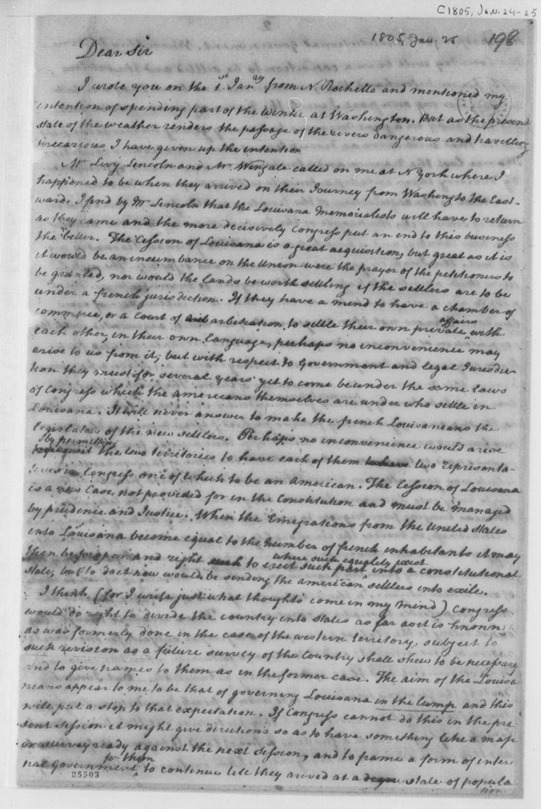 C1805, Jan. 24-25
1805, Jan. 25
198
Dear Sir
I wrote you on the 1st Jany from N. Rochelle and mentioned my
intention of spending part of the winter at Washington. But as the present
state of the weather renders the passage of the rivers dangerous and travelling
precarious, I have given up the intention
Mr. Levy Lincoln and Mr. Wingate called on me at N York where I
happened to be when they arrived on their Journey from Washington to the East-
ward. I find by Mr. Lincoln that the Louisiana Memorialists will have to return
as they came and the more decisively Congress put an end to this business
the better. The Cession of Louisiana is a great acquisition, but great as it is
it would be an incumbrance on the Union were the prayer of the petitioners to
be granted, nor would the lands be worth settling if the settlers are to be
under a french jurisdiction. If they have a mind to have a chamber of
commerce, or a court of arbitration, to settle their own private affairs with
each other, in their own language, perhaps no inconvenience may
arise to us from it; but with respect to Government and legal Jurisdic-
tion they must for several years yet to come be under the same laws
of Congress which the americans themselves are under who settle in
Louisiana. It will never answer to make the french Louisianians the
legislators of the new settlers. Perhaps no inconvenience would arise
by permitting the two territories to have each of them two representa-
tives in Congress one of which to be an American. The Cession of Louisiana
is a new Case, not provided for in the Constitution and must be managed
by prudence and Justice. When the Emigrations from the United States
into Louisiana become equal to the number of french inhabitants it may
then be proper and right to erect such part where such equality exist into a constitutional
state; but to do it now would be sending the american settlers into exile.
I think, (for I write just what thoughts come in my mind) Congress
would do right to divide the country into states as far as it is known,
as was formerly done in the case of the western territory, subject to
such revision as a future survey of the Country shall shew to be necessary
and to give names to them as in the former case. The aim of the Louisia-
nians appear to me to be that of governing Louisiana in the lump and this
will put a stop to that expectation. If Congress cannot do this in the pre-
sent session it might give directions so as to have something like a map
or survey ready against the next Session, and to frame a form of inter
nal government for them to continue till they arrived at a state of popula
tion
25503